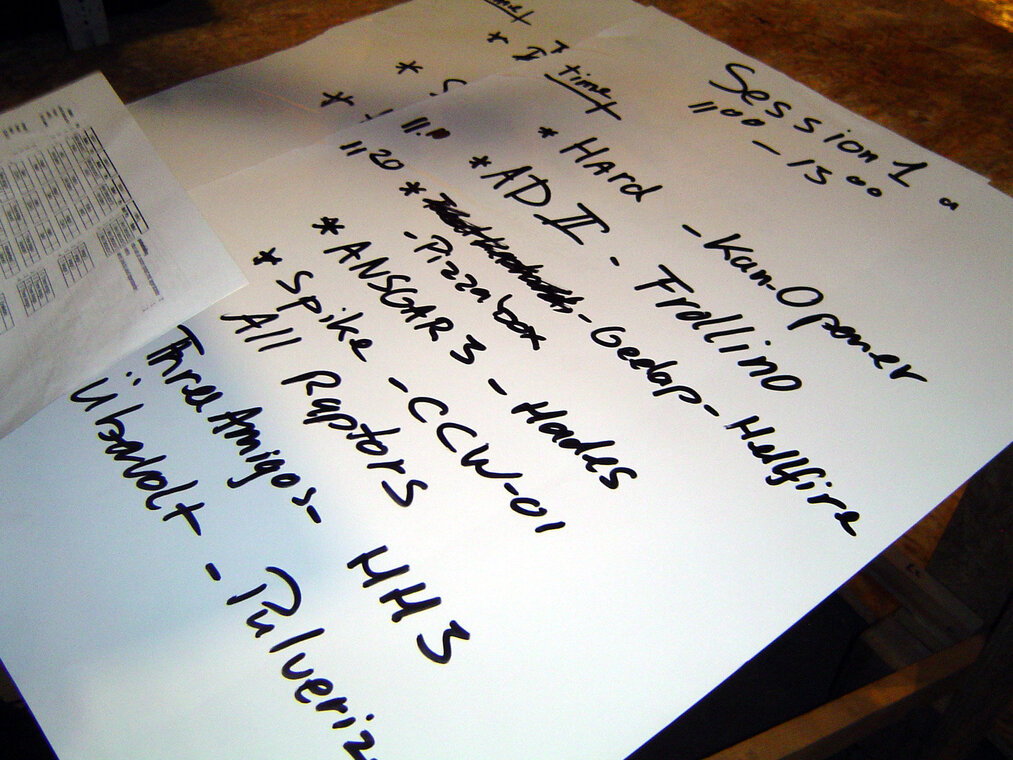 Session 1
11⁰⁰ - 13⁰⁰
time
* Hard - Kan-Opener
* AD II - Frollino
1120 * - Geedap - Hellfire
- Pizzabox
* ANSGAR 3 - Hades
* Spike - CCW-01
All Raptors
Three Amigos - HH3
Übabolt - Pulveriz